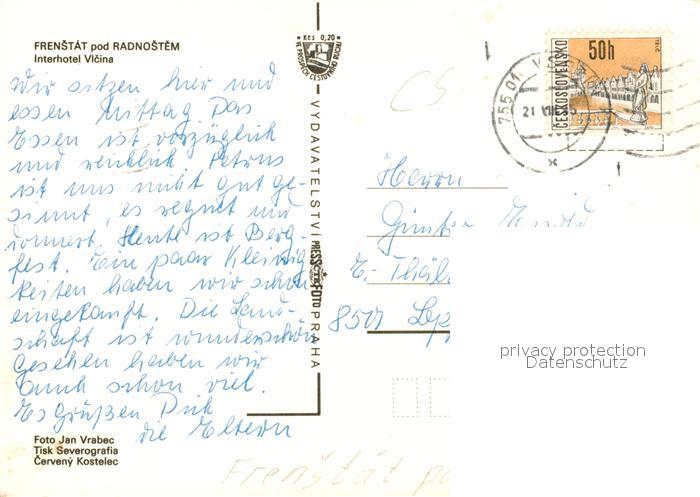 FRENŠTÁT pod RADNOŠTĚM
Interhotel Vlčina
Wir sitzen hier und
essen Mittag Das
Essen ist vorzüglich
und reichlich Petrus
ist uns nicht gut ge-
sinnt, es regnet und
donnert. Heute ist Berg-
fest. Ein paar Kleinig
keiten haben wir schon
eingekauft. Die Land-
schaft ist wunderschön
Gesehen haben wir
auch schon viel.
Es Grüßen Dich
die Eltern
Foto Jan Vrabec
Tisk Severografia
Červený Kostelec
Kčs 0,20
VE PROSPĚCH CESTOVNÍHO RUCHU
VYDAVATELSTVÍ PRESSFOTO PRAHA
ČESKOSLOVENSKO
50h
TELČ
755 01
21
Herrn
Günter
E-Thäl
8507
privacy protection
Datenschutz
Frenštát po